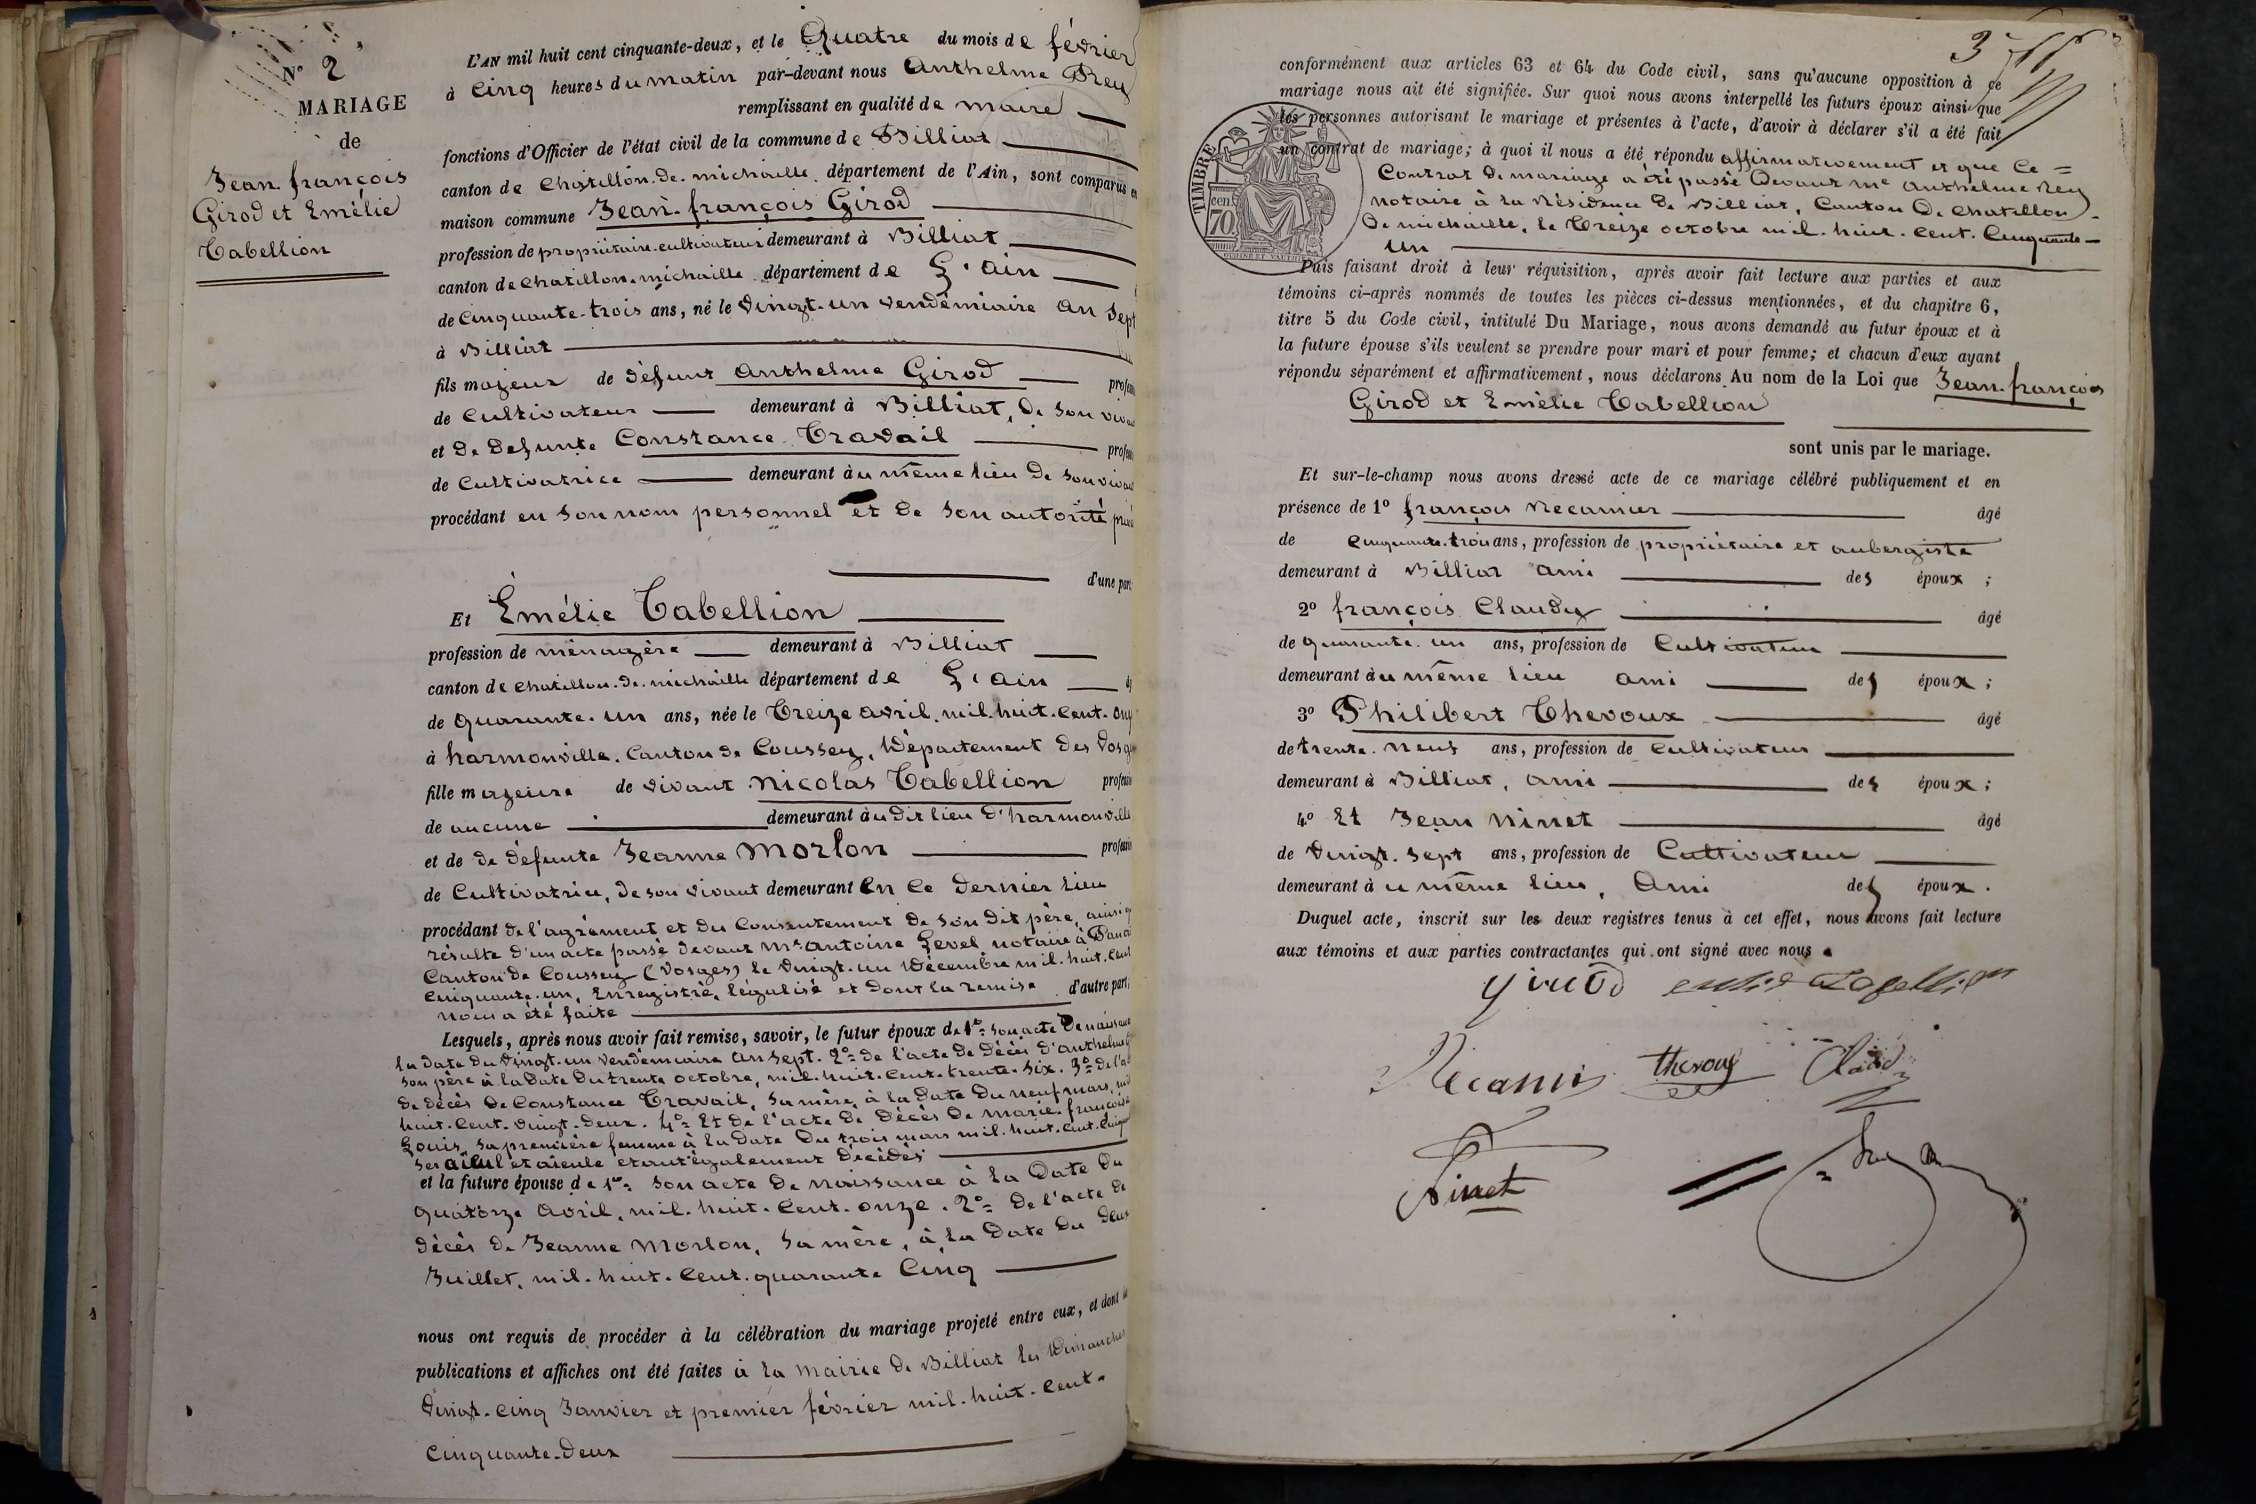 N° 2
MARIAGE
de
Jean-françois
Girod et Emélie
Tabellion
L'AN mil huit cent cinquante-deux, et le Quatre du mois de février
à Cinq heures du matin par-devant nous Anthelme Rey
remplissant en qualité de maire
fonctions d'Officier de l'état civil de la commune de Billiat
canton de Chatillon-de-michaille département de l'Ain, sont comparus en
maison commune Jean-françois Girod
profession de propriétaire-cultivateur demeurant à Billiat
canton de Chatillon-michaille département de L'ain
de Cinquante-trois ans, né le vingt-un vendémiaire an Sept
à Billiat
fils majeur de défunt Anthelme Girod
de Cultivateur demeurant à Billiat, de son
et de Defunte Constance Travail
de Cultivatrice demeurant au même lieu de son
procédant en son nom personnel et de son autorité
d'une part
Et Emélie Tabellion
profession de ménagère demeurant à Billiat
canton de chatillon-de-michaille département de L'ain
de quarante-un ans, née le Treize avril mil-huit-cent-
à harmonville, Canton de Coussey, Département des
fille majeure de vivant Nicolas Tabellion
de aucune demeurant au dit lieu d'harmonville
et de de défunte Jeanne Morlon
de Cultivatrice, de son vivant demeurant en ce dernier lieu
procédant de l'agrément et du Consentement de son dit père, ainsi
résulte d'un acte passé devant Me Antoine Level notaire à
Canton de Coussey (Vosges) le vingt-un Décembre mil-huit-cent
cinquante-un, Enregistré, légalisé et dont la remise d'autre part,
nous a été faite
Lesquels, après nous avoir fait remise, savoir, le futur époux de 1° son acte de naissance
la date du vingt-un vendémiaire an sept. 2° de l'acte de décès d'anthelme
son père à la date du trente octobre, mil-huit-cent-trente-six. 3° de
de décès de Constance Travail, sa mère, à la date du neuf mars,
huit-cent-vingt-deux. 4° Et de l'acte de décès de marie-françoise
Louis, sa première femme à la date du trois mars mil-huit-cent-
ses aïeul et aïeule etant également décédés
et la future épouse de 1° son acte de naissance à la Date du
quatorze avril, mil-huit-cent-onze. 2° de l'acte de
décès de Jeanne Morlon, sa mère, à la Date du deux
Juillet, mil-huit-cent-quarante Cinq
nous ont requis de procéder à la célébration du mariage projeté entre eux, et dont
publications et affiches ont été faites à la mairie de Billiat les Dimanches
vingt-cinq Janvier et premier février mil-huit-cent-
cinquante-deux
3
conformément aux articles 63 et 64 du Code civil, sans qu'aucune opposition à ce
mariage nous ait été signifiée. Sur quoi nous avons interpellé les futurs époux ainsi que
les personnes autorisant le mariage et présentes à l'acte, d'avoir à déclarer s'il a été fait
un contrat de mariage; à quoi il nous a été répondu affirmativement et que ce
Contrat de mariage a été passé devant Me Anthelme Rey
notaire à la Résidence de Billiat, Canton de Chatillon
de michaille, le Treize octobre mil-huit-cent-Cinquante-
un
TIMBRE
70 cen
Puis faisant droit à leur réquisition, après avoir fait lecture aux parties et aux
témoins ci-après nommés de toutes les pièces ci-dessus mentionnées, et du chapitre 6,
titre 5 du Code civil, intitulé Du Mariage, nous avons demandé au futur époux et à
la future épouse s'ils veulent se prendre pour mari et pour femme; et chacun d'eux ayant
répondu séparément et affirmativement, nous déclarons Au nom de la Loi que Jean-françois
Girod et Emélie Tabellion
sont unis par le mariage.
Et sur-le-champ nous avons dressé acte de ce mariage célébré publiquement et en
présence de 1° françois Recamier âgé
de cinquante-trois ans, profession de propriétaire et aubergiste
demeurant à Billiat ami des époux ;
2° françois Claudy âgé
de quarante-un ans, profession de Cultivateur
demeurant au même lieu ami des époux ;
3° Philibert Thevoux âgé
de trente-neuf ans, profession de Cultivateur
demeurant à Billiat, ami des époux ;
4° Et Jean Ninet âgé
de vingt-sept ans, profession de Cultivateur
demeurant au même lieu, Ami des époux.
Duquel acte, inscrit sur les deux registres tenus à cet effet, nous avons fait lecture
aux témoins et aux parties contractantes qui ont signé avec nous
girod
Ninet